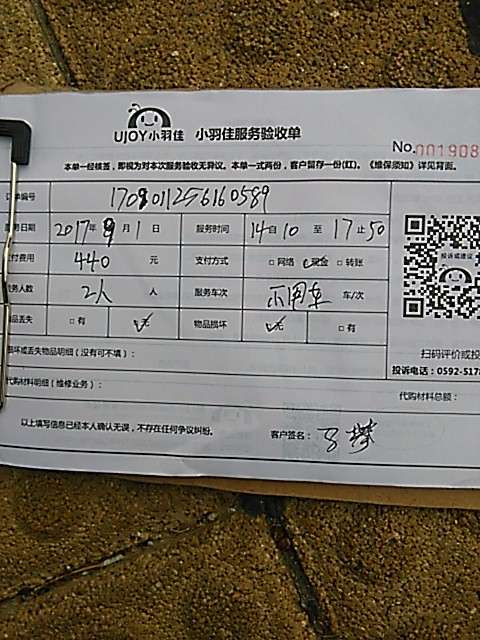 UJOY小羽佳 小羽佳服务验收单
No.001908
本单一经核签，即视为对本次服务验收无异议。本单一式两份，客户留存一份(红)。《维保须知》详见背面。
订单编号 1709011256160589
服务日期 2017年9月1日 服务时间 14自10至17止50
付费用 440 元 支付方式 □网络 □现金 □转账
务人数 2人 人 服务车次 不用车 车/次
品丢失 □有 □无 物品损坏 □无 □有
投诉或建议
损坏或丢失物品明细（没有可不填）：
扫码评价或投
投诉电话：0592-5178
代购材料明细（维修业务）：
代购材料总额：
以上填写信息已经本人确认无误，不存在任何争议纠纷。 客户签名：